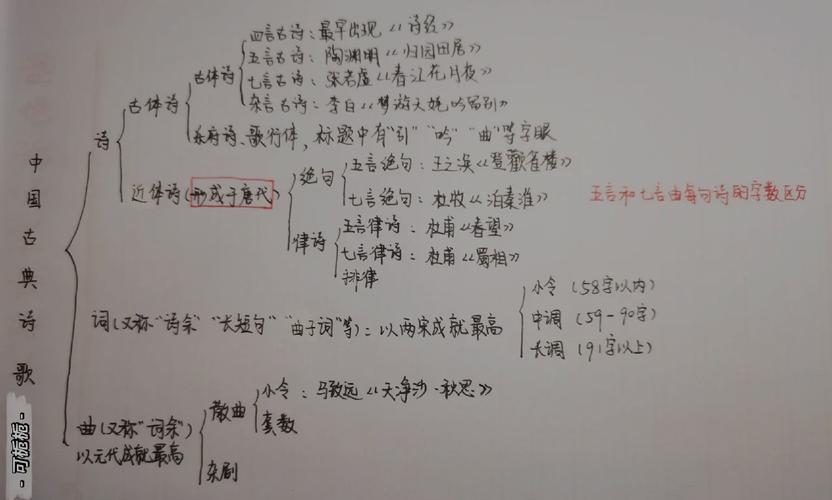 中国古典诗歌
诗
古体诗
古体诗
四言古诗：最早出现《诗经》
五言古诗：陶渊明《归园田居》
七言古诗：张若虚《春江花月夜》
杂言古诗：李白《梦游天姥吟留别》
乐府诗、歌行体，标题中有"引""吟""曲"等字眼
近体诗（形成于唐代）
绝句
五言绝句：王之涣《登鹳雀楼》
七言绝句：杜牧《泊秦淮》
五言和七言由每句诗的字数区分
律诗
五言律诗：杜甫《春望》
七言律诗：杜甫《蜀相》
排律
词（又称"诗余""长短句""曲子词"等）：以两宋成就最高
小令（58字以内）
中调（59-90字）
长调（91字以上）
曲（又称"词余"）
以元代成就最高
散曲
小令：马致远《天净沙·秋思》
套数
杂剧
-可栀栀-